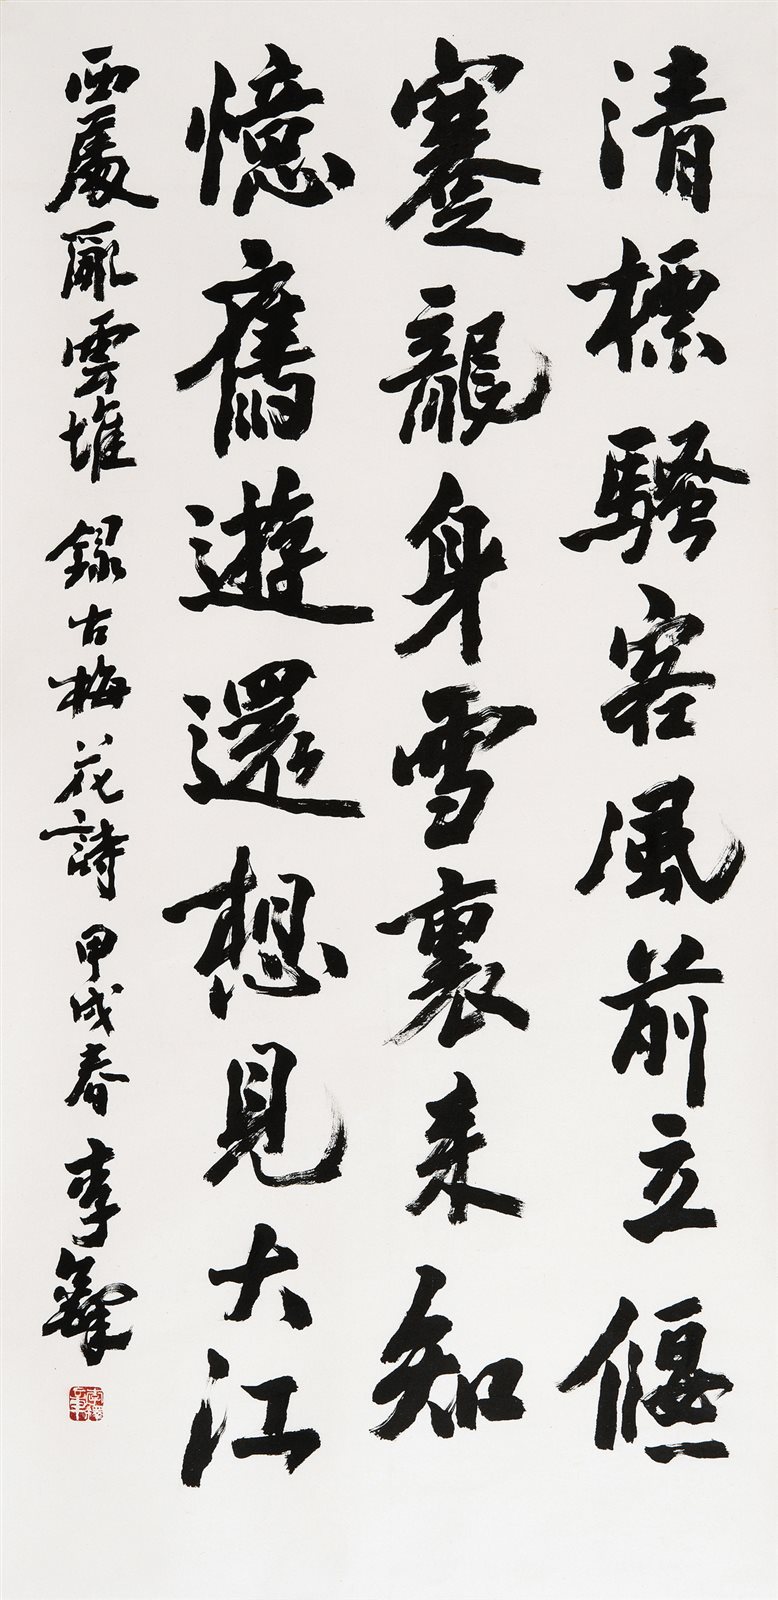 清標騷客風前立偃
蹇龍身雪裏来知
憶舊遊還想見大江
西處亂雲堆 録古梅花詩 甲戌春 李鐸